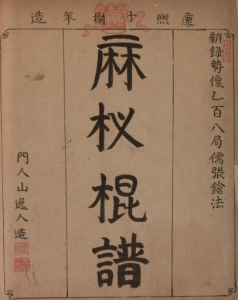 康熙十捌年造
新錄勢像乙百八局儒張鎗法
麻杈棍譜
門人山逸人造